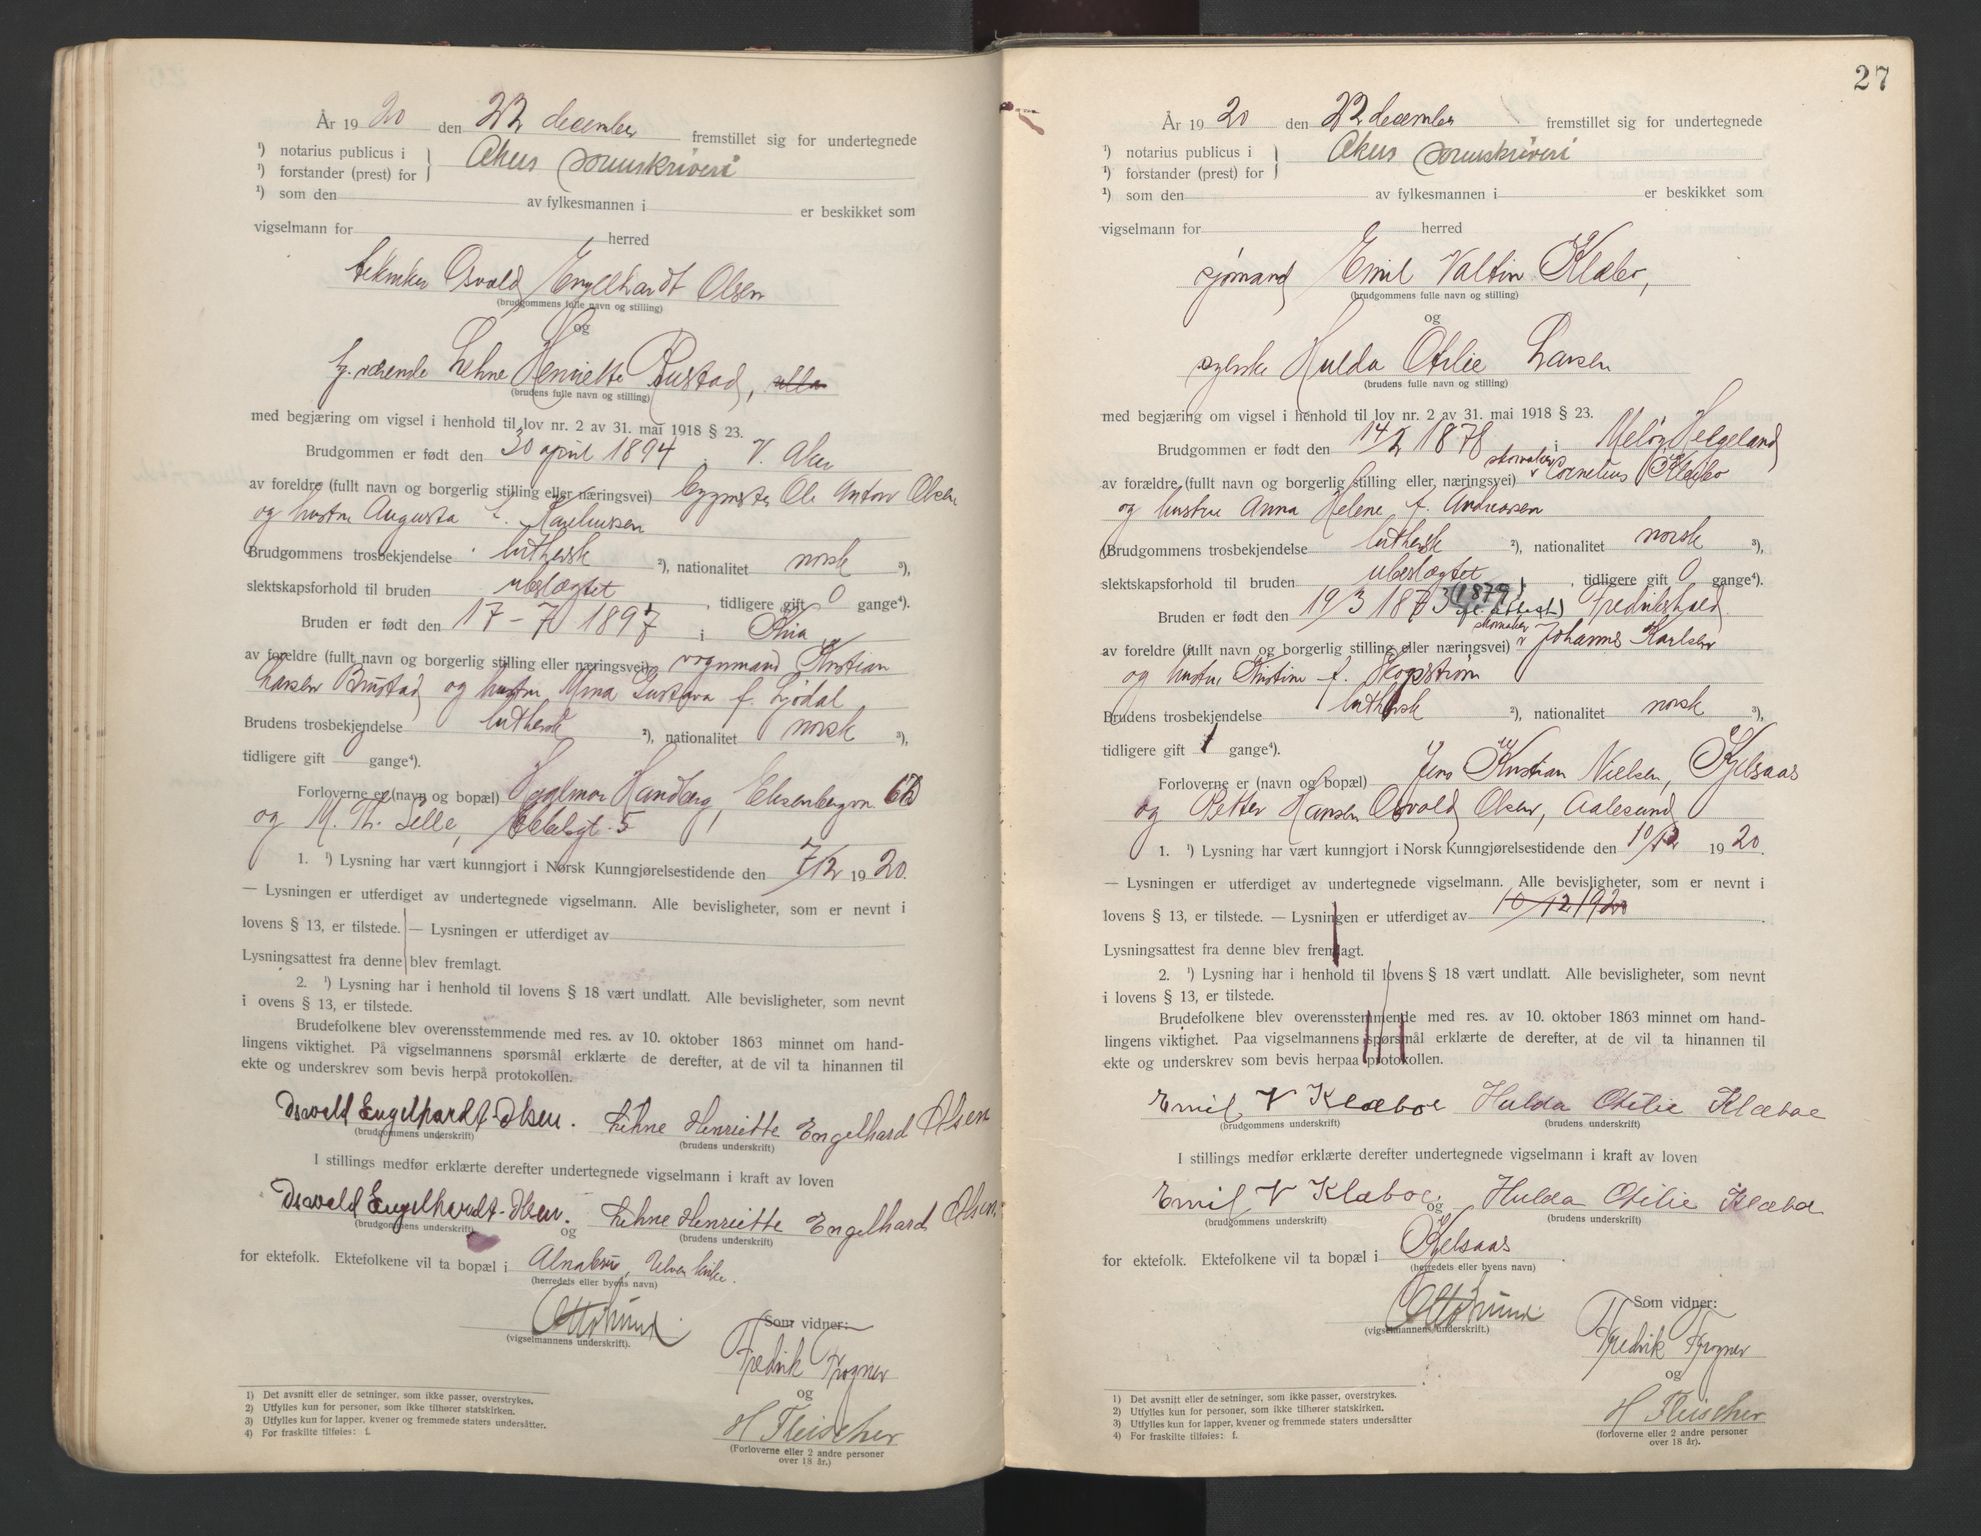 År 1920 den 22 december fremstillet sig for undertegnede
¹) notarius publicus i } Akers sorenskriveri
¹) forstander (prest) for }
¹) som den av fylkesmannen i er beskikket som
vigselmann for herred
tekniker Osvald Engelhardt Olsen
(brudgommens fulle navn og stilling)
og
Lehne Henriette Brustad,
(brudens fulle navn og stilling)
med begjæring om vigsel i henhold til lov nr. 2 av 31. mai 1918 § 23.
Brudgommen er født den 30 april 1894 i V. Aker
av foreldre (fullt navn og borgerlig stilling eller næringsvei) bygmester Ole Anton Olsen
og hustru Augusta f.
Brudgommens trosbekjendelse luthersk ²), nationalitet norsk ³),
slektskapsforhold til bruden ubeslægtet, tidligere gift 0 gange⁴).
Bruden er født den 17-7 1897 i Kria
av foreldre (fullt navn og borgerlig stilling eller næringsvei) vognmand Kristian
Larsen Brustad og hustru Mina Gustava f. Ljødal
Brudens trosbekjendelse luthersk ²), nationalitet norsk ³),
tidligere gift 0 gange⁴).
Forloverne er (navn og bopæl) Hjalmar Handberg,
og M. Th. Selle, 5
1. ¹) Lysning har vært kunngjort i Norsk Kunngjørelsestidende den 7/12 1920.
— Lysningen er utferdiget av undertegnede vigselmann. Alle bevisligheter, som er nevnt i
lovens § 13, er tilstede. — Lysningen er utferdiget av
Lysningsattest fra denne blev fremlagt.
2. ¹) Lysning har i henhold til lovens § 18 vært undlatt. Alle bevisligheter, som nevnt
i ovens § 13, er tilstede.
Brudefolkene blev overensstemmende med res. av 10. oktober 1863 minnet om hand-
lingens viktighet. På vigselmannens spørsmål erklærte de derefter, at de vil ta hinannen til
ekte og underskrev som bevis herpå protokollen.
Osvald Engelhardt-Olsen. Lehne Henriette Engelhard Olsen
(brudgommens underskrift) (brudens underskrift)
I stillings medfør erklærte derefter undertegnede vigselmann i kraft av loven
Osvald Engelhardt-Olsen. og Lehne Henriette Engelhard Olsen
(brudgommens underskrift) (brudens underskrift)
for ektefolk. Ektefolkene vil ta bopæl i Alnabru,
(herredets eller byens navn)
(vigselmannens underskrift).
Som vidner:
Fredrik Frogner
og
H Fleischer
(Forloverne eller 2 andre personer
over 18 år.)
1) Det avsnitt eller de setninger, som ikke passer, overstrykes.
2) Utfylles kun for personer, som ikke tilhører statskirken.
3) Utfylles kun for lapper, kvener og fremmede staters undersåtter.
4) For fraskilte tilføies: f.
27
År 1920 den 22 december fremstillet sig for undertegnede
¹) notarius publicus i } Akers sorenskriveri
¹) forstander (prest) for }
¹) som den av fylkesmannen i er beskikket som
vigselmann for herred
sjømand Emil Valtin Klæbo,
(brudgommens fulle navn og stilling)
og
syerske Hulda Otilie Larsen
(brudens fulle navn og stilling)
med begjæring om vigsel i henhold til lov nr. 2 av 31. mai 1918 § 23.
Brudgommen er født den 14/2 1878 i Meløy Helgeland
av forældre (fullt navn og borgerlig stilling eller, næringsvei) skomaker Cornelius Klæbo
og hustru Anna Helene f. Andreassen
(Brudgommens trosbekjendelse luthersk ²), nationalitet norsk ³),
slektskapsforhold til bruden ubeslægtet, tidligere gift 0 gange⁴).
Bruden er født den 19/3 1873 (1879 attest) i Fredrikshald
av foreldre (fullt navn og borgerlig stilling eller næringsvei) skomaker Johannes Karlsen
og hustru Kristine f. Skogstrøm
Brudens trosbekjendelse luthersk ²), nationalitet norsk ³),
tidligere gift 1 gange⁴).
Forloverne er (navn og bopæl) Jens Kristian Nielsen, Kjelsaas
og Petter Hansen Osvald Olsen, Aalesund
1. ¹) Lysning har vært kunngjort i Norsk Kunngjørelsestidende den 10/12 1920.
— Lysningen er utferdiget av undertegnede vigselmann. Alle bevisligheter, som er nevnt i
lovens § 13, er tilstede. — Lysningen er utferdiget av 10/12 1920.
Lysningsattest fra denne blev fremlagt.
2. ¹) Lysning har i henhold til lovens § 18 vært undlatt. Alle bevisligheter, som nevnt
i lovens § 13, er tilstede.
Brudefolkene blev overensstemmende med res. av 10. oktober 1863 minnet om hand-
lingens viktighet. Paa vigselmannens spørsmål erklærte de derefter, at de vil ta hinannen til
ekte og underskrev som bevis herpaa protokollen.
Emil V Klæboe Hulda Otilie Klæboe
(brudgommens underskrift) (brudens underskrift)
I stillings medfør erklærte derefter undertegnede vigselmann i kraft av loven
Emil V Klæboe. og Hulda Otilie Klæboe
(brudgommens underskrift) (brudens underskrift)
for ektefolk. Ektefolkene vil ta bopæl i Kjelsaas.
(herredets eller byens navn)
(vigselmannens underskrift.)
Som vidner:
Fredrik Frogner
og
H Fleischer
(forloverne eller 2 andre personer
over 18 år).
1) Det avsnitt eller de setninger, som ikke passer, overstrykes.
2) Utfylles kun for personer, som ikke tilhører statskirken.
3) Utfylles kun for lapper, kvener og fremmede staters undersåtter
4) For fraskilte tilføies: f.